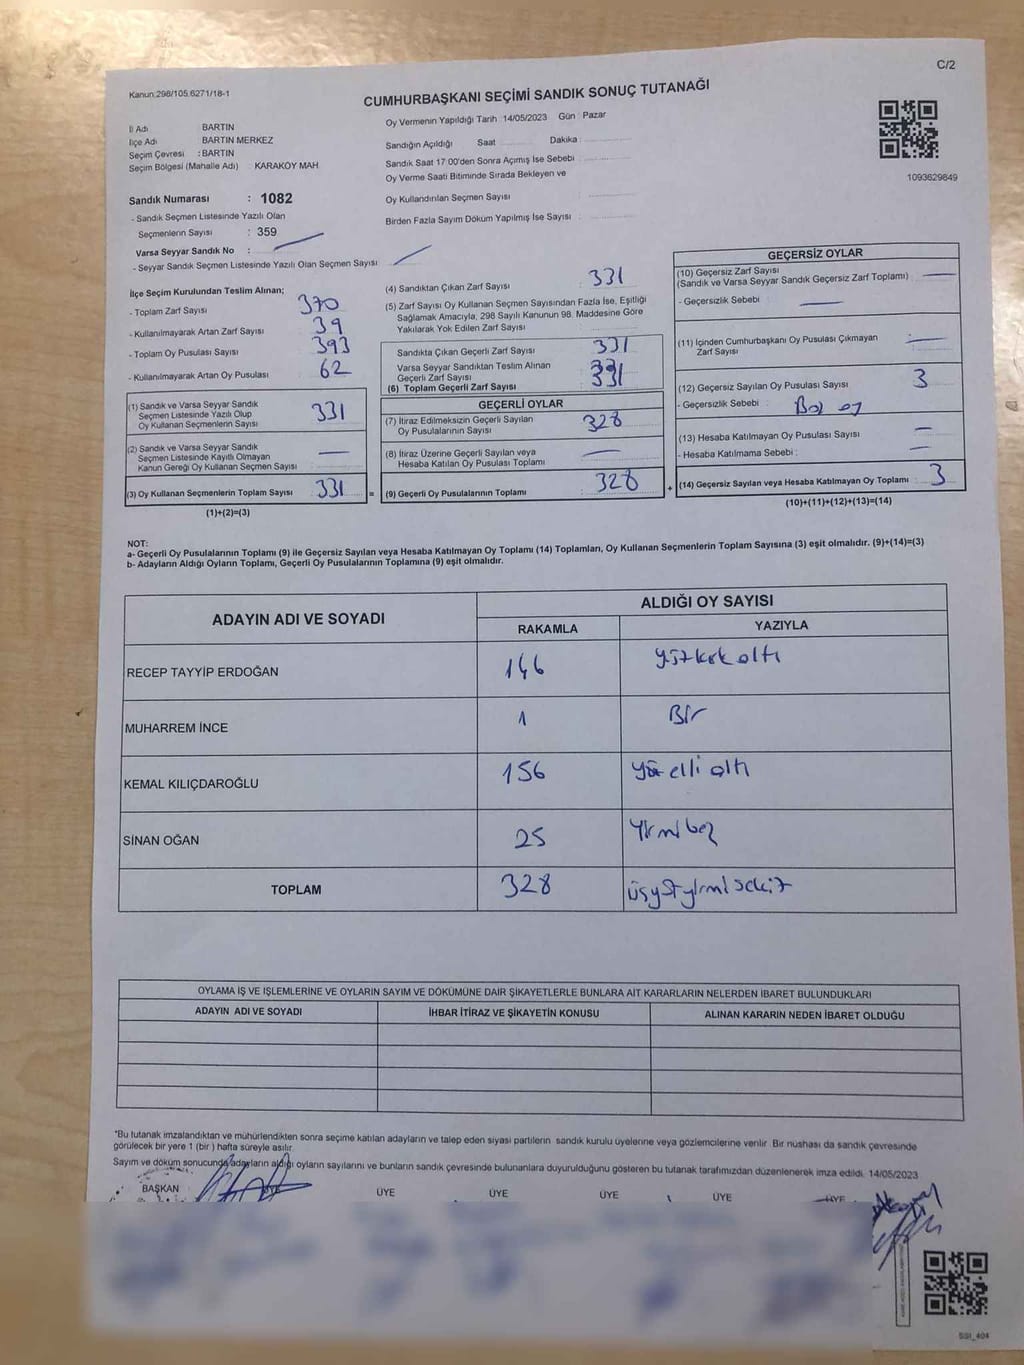 C/2
Kanun:298/105.6271/18-1
CUMHURBAŞKANI SEÇİMİ SANDIK SONUÇ TUTANAĞI
İl Adı BARTIN
İlçe Adı BARTIN MERKEZ
Seçim Çevresi : BARTIN
Seçim Bölgesi (Mahalle Adı) : KARAKÖY MAH.
Sandık Numarası : 1082
- Sandık Seçmen Listesinde Yazılı Olan
Seçmenlerin Sayısı : 359
Varsa Seyyar Sandık No :
- Seyyar Sandık Seçmen Listesinde Yazılı Olan Seçmen Sayısı
Oy Vermenin Yapıldığı Tarih : 14/05/2023 Gün : Pazar
Sandığın Açıldığı Saat Dakika :
Sandık Saat 17:00'den Sonra Açımış İse Sebebi
Oy Verme Saati Bitiminde Sırada Bekleyen ve
Oy Kullandırılan Seçmen Sayısı
Birden Fazla Sayım Döküm Yapılmış İse Sayısı
1093629849
İlçe Seçim Kurulundan Teslim Alınan;
- Toplam Zarf Sayısı 370
- Kullanılmayarak Artan Zarf Sayısı 39
- Toplam Oy Pusulası Sayısı 393
- Kullanılmayarak Artan Oy Pusulası 62
(1) Sandık ve Varsa Seyyar Sandık
Seçmen Listesinde Yazılı Olup
Oy Kullanan Seçmenlerin Sayısı 331
(2) Sandık ve Varsa Seyyar Sandık
Seçmen Listesinde Kayıtlı Olmayan
Kanun Gereği Oy Kullanan Seçmen Sayısı —
(3) Oy Kullanan Seçmenlerin Toplam Sayısı 331 =
(1)+(2)=(3)
(4) Sandıktan Çıkan Zarf Sayısı 331
(5) Zarf Sayısı Oy Kullanan Seçmen Sayısından Fazla İse, Eşitliği
Sağlamak Amacıyla, 298 Sayılı Kanunun 98. Maddesine Göre
Yakılarak Yok Edilen Zarf Sayısı
Sandıkta Çıkan Geçerli Zarf Sayısı 331
Varsa Seyyar Sandıktan Teslim Alınan
Geçerli Zarf Sayısı
(6) Toplam Geçerli Zarf Sayısı 331
GEÇERLİ OYLAR
(7) İtiraz Edilmeksizin Geçerli Sayılan
Oy Pusulalarının Sayısı 328
(8) İtiraz Üzerine Geçerli Sayılan veya
Hesaba Katılan Oy Pusulası Toplamı —
(9) Geçerli Oy Pusulalarının Toplamı 328 +
GEÇERSİZ OYLAR
(10) Geçersiz Zarf Sayısı
(Sandık ve Varsa Seyyar Sandık Geçersiz Zarf Toplamı) —
- Geçersizlik Sebebi —
(11) İçinden Cumhurbaşkanı Oy Pusulası Çıkmayan
Zarf Sayısı —
(12) Geçersiz Sayılan Oy Pusulası Sayısı 3
- Geçersizlik Sebebi :
(13) Hesaba Katılmayan Oy Pusulası Sayısı —
- Hesaba Katılmama Sebebi : —
(14) Geçersiz Sayılan veya Hesaba Katılmayan Oy Toplamı 3
(10)+(11)+(12)+(13)=(14)
NOT:
a- Geçerli Oy Pusulalarının Toplamı (9) ile Geçersiz Sayılan veya Hesaba Katılmayan Oy Toplamı (14) Toplamları, Oy Kullanan Seçmenlerin Toplam Sayısına (3) eşit olmalıdır. (9)+(14)=(3)
b- Adayların Aldığı Oyların Toplamı, Geçerli Oy Pusulalarının Toplamına (9) eşit olmalıdır.
ADAYIN ADI VE SOYADI ALDIĞI OY SAYISI
RAKAMLA YAZIYLA
RECEP TAYYİP ERDOĞAN 146 yüzkırkaltı
MUHARREM İNCE 1 Bir
KEMAL KILIÇDAROĞLU 156 yüz elli altı
SİNAN OĞAN 25 Yirmibeş
TOPLAM 328 üçyüzyirmisekiz
OYLAMA İŞ VE İŞLEMLERİNE VE OYLARIN SAYIM VE DÖKÜMÜNE DAİR ŞİKAYETLERLE BUNLARA AİT KARARLARIN NELERDEN İBARET BULUNDUKLARI
ADAYIN ADI VE SOYADI İHBAR İTİRAZ VE ŞİKAYETİN KONUSU ALINAN KARARIN NEDEN İBARET OLDUĞU
*Bu tutanak imzalandıktan ve mühürlendikten sonra seçime katılan adayların ve talep eden siyasi partilerin sandık kurulu üyelerine veya gözlemcilerine verilir. Bir nüshası da sandık çevresinde
görülecek bir yere 1 (bir) hafta süreyle asılır.
Sayım ve döküm sonucunda adayların aldığı oyların sayılarını ve bunların sandık çevresinde bulunanlara duyurulduğunu gösteren bu tutanak tarafımızdan düzenlenerek imza edildi. 14/05/2023
BAŞKAN ÜYE ÜYE ÜYE ÜYE ÜYE
SSI_404